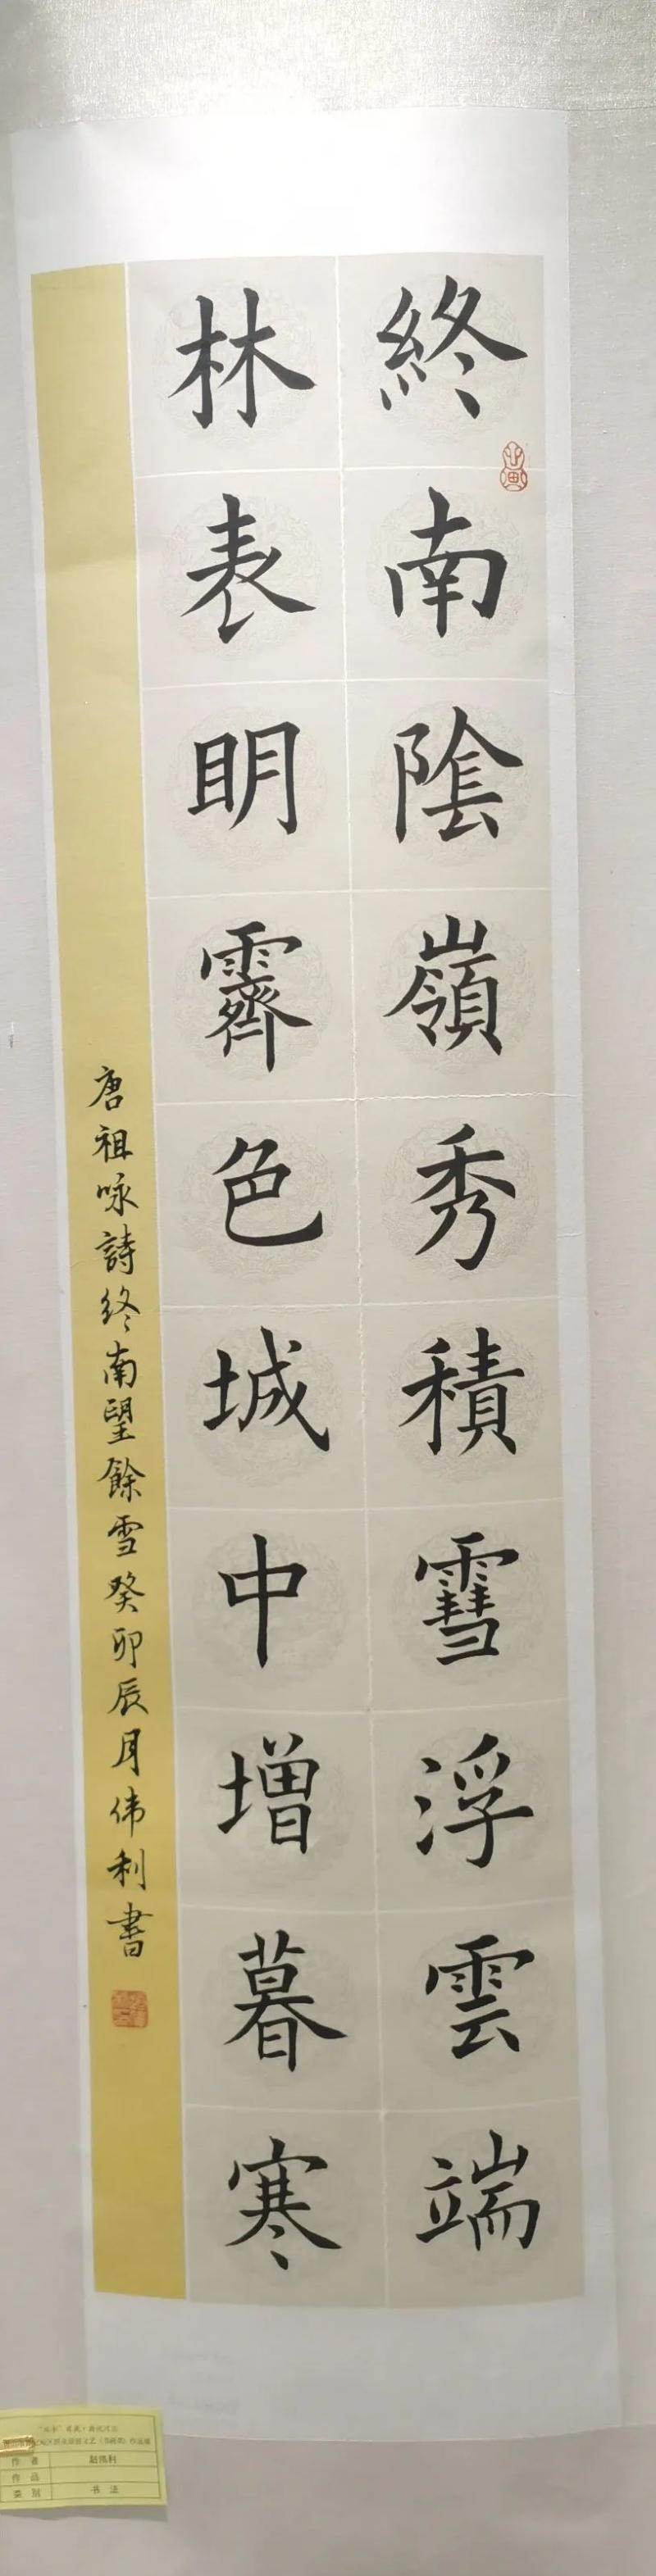 終南陰嶺秀積雪浮雲端
林表明霽色城中增暮寒
唐祖咏詩終南望餘雪癸卯辰月伟利書
作者 赵伟利
作品
类别 书法